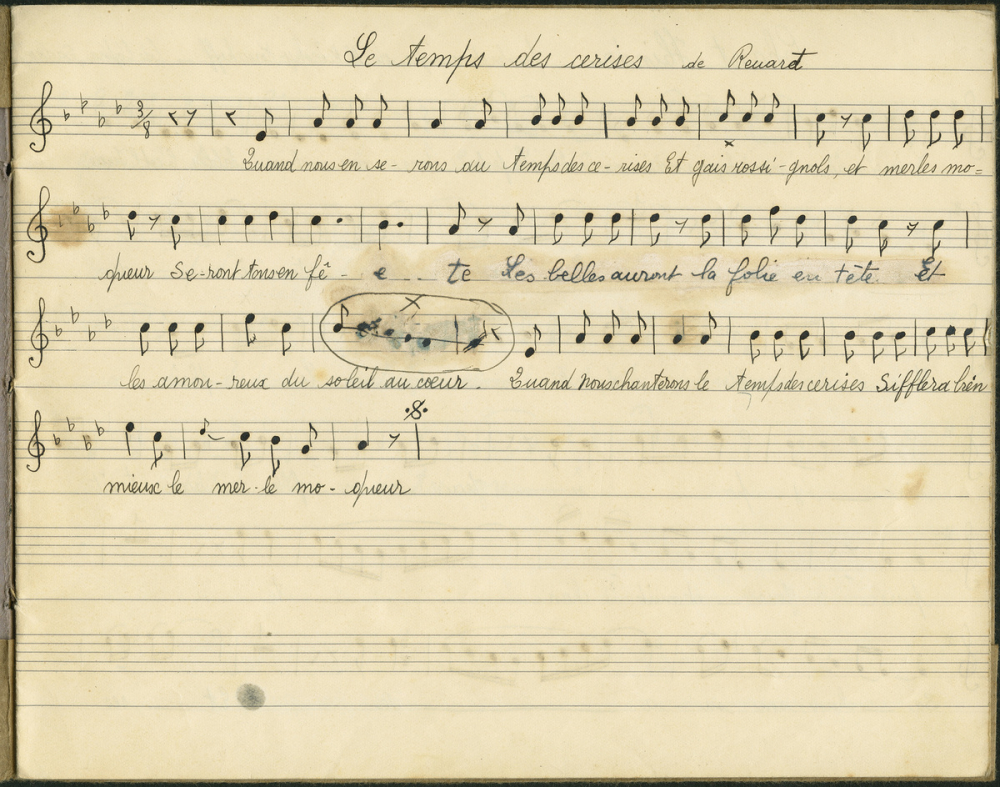 Le temps des cerises de Renard
3/8
Quand nous en se-rons au temps des ce-rises Et gais rossi-gnols, et merles mo=
queur Se-ront tous en fê- e.. te Les belles auront la folie en tête. Et
les amou-reux du soleil au cœur. Quand nous chanterons le temps des cerises Sifflera bien
mieux le mer-le mo-queur